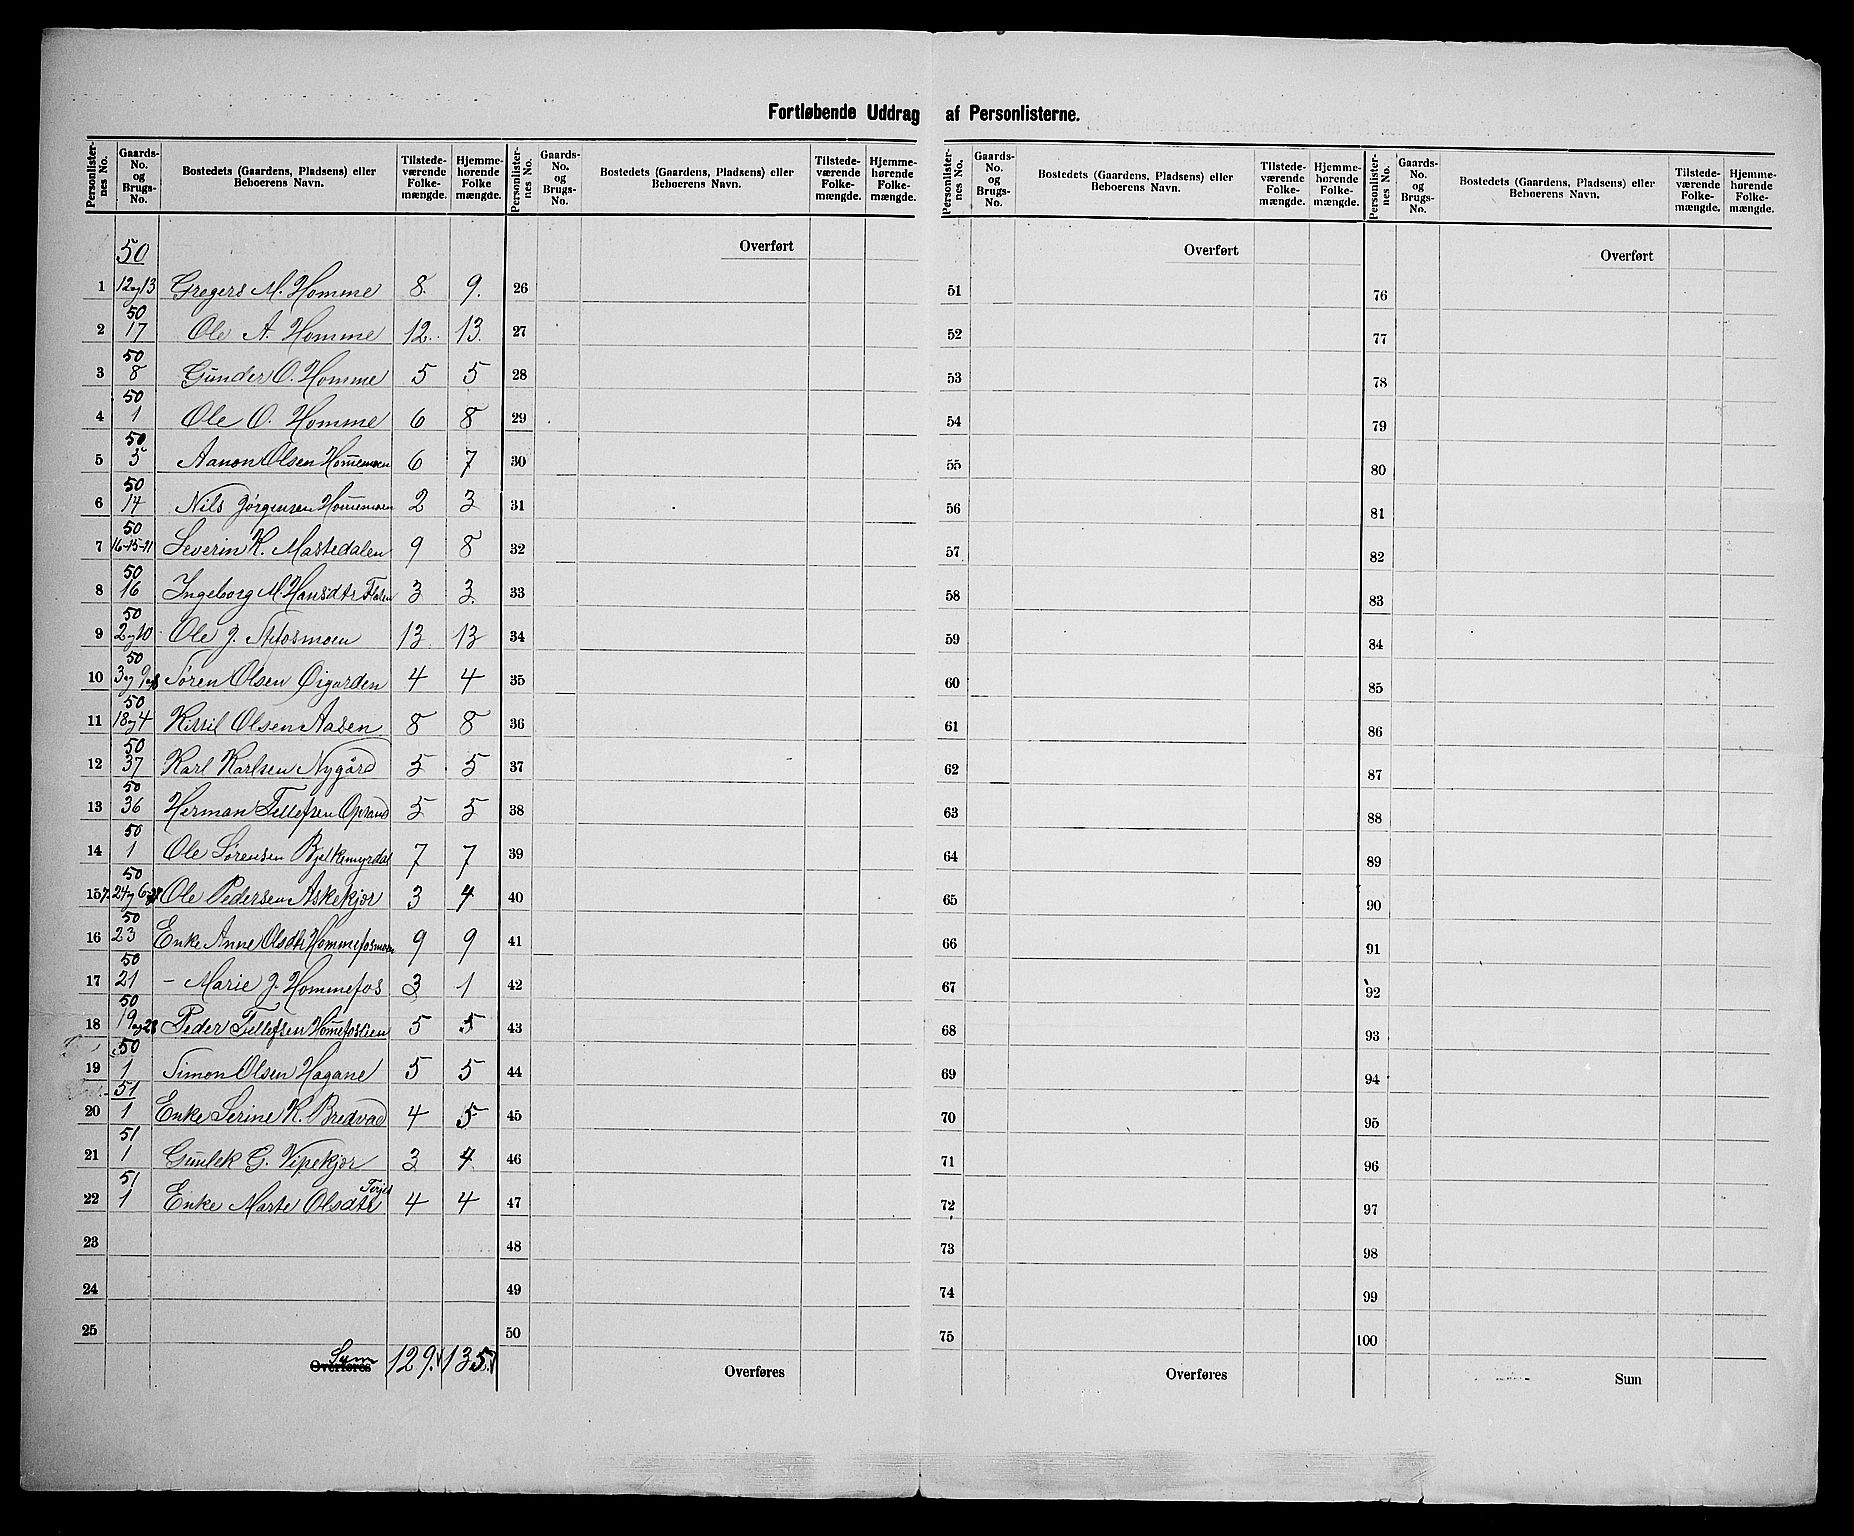 Fortløbende Uddrag af Personlisterne.
Personlisternes No. Gaards-No. og Brugs-No. Bostedets (Gaardens, Pladsens) eller Beboerens Navn. Tilstedeværende Folkemængde. Hjemmehørende Folkemængde.
Personlisternes No. Gaards-No. og Brugs-No. Bostedets (Gaardens, Pladsens) eller Beboerens Navn. Tilstedeværende Folkemængde. Hjemmehørende Folkemængde.
Personlisternes No. Gaards-No. og Brugs-No. Bostedets (Gaardens, Pladsens) eller Beboerens Navn. Tilstedeværende Folkemængde. Hjemmehørende Folkemængde.
Personlisternes No. Gaards-No. og Brugs-No. Bostedets (Gaardens, Pladsens) eller Beboerens Navn. Tilstedeværende Folkemængde. Hjemmehørende Folkemængde.
50
1 12 og 13 Gregers M. Homme 8. 9.
2 50 17 Ole A. Homme 12. 13.
3 50 8 Gunder O. Homme 5 5
4 50 1 Ole O. Homme 6 8
5 50 5 Aanon Olsen Hommemoen 6 7
6 50 14 Nils Jørgensen Hommemoen 2 3
7 50 16-15-11 Severin K. Mastedalen 9 8
8 50 16 Ingeborg M. Hansdtr 3 3.
9 50 2 og 10 Ole J. 13 13
10 50 3 og 9 Søren Olsen Øigarden 4 4
11 50 18 og 4 Kittil Olsen Aasen 8 8
12 50 37 Karl Karlsen Nygård 5 5
13 50 36 Herman Tellefsen Opsand 5 5
14 50 1 Ole Sørensen Bjelkemyrdal 7 7
15 50 24 og 6 Ole Pedersen Askekjær 3 4
16 50 23 Enke Anne Olsdtr Hommefosmoen 9 9
17 50 21 - Marie J. Hommefos 3 1
18 50 19 og 28 Peder Tellefsen 5 5
19 50 1 Simon Olsen Hagane 5 5
20 51 1 Enke Serine K. Bredvad 4 5
21 51 1 Gunlek G. Vipekjær 3 4
22 51 1 Enke Marte Olsdtr Terjes 4 4
23
24
25
Overføres Sum 129. 135.
Overført
26
27
28
29
30
31
32
33
34
35
36
37
38
39
40
41
42
43
44
45
46
47
48
49
50
Overføres
Overført
51
52
53
54
55
56
57
58
59
60
61
62
63
64
65
66
67
68
69
70
71
72
73
74
75
Overføres
Overført
76
77
78
79
80
81
82
83
84
85
86
87
88
89
90
91
92
93
94
95
96
97
98
99
100
Sum